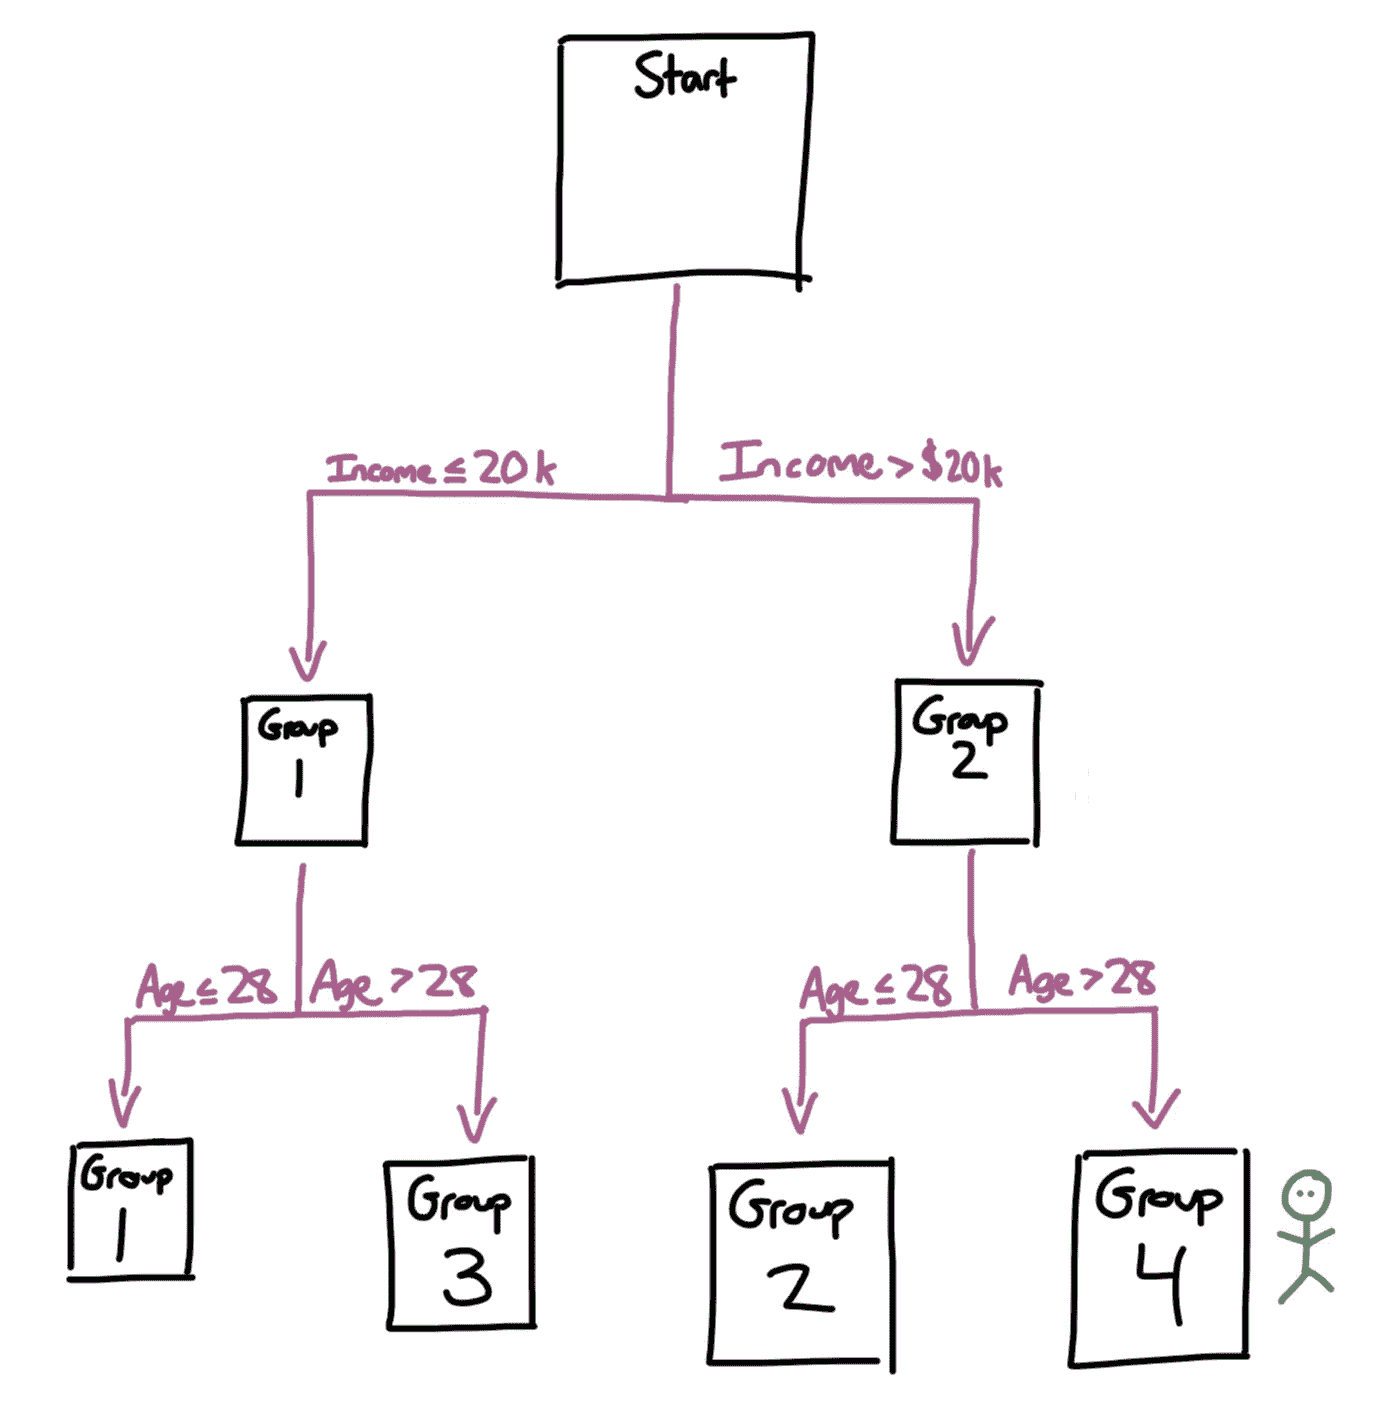 Start
Income ≤ 20k
Income > $20k
Group
1
Group
2
Age ≤ 28
Age > 28
Age ≤ 28
Age > 28
Group
1
Group
3
Group
2
Group
4